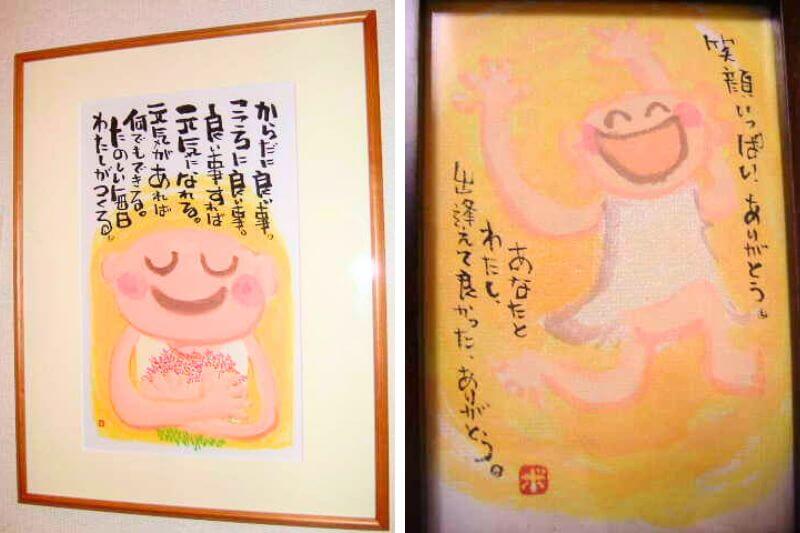 からだに良い事。
こころに良い事。
良い事すれば
元気になれる。
元気があれば
何でもできる。
たのしい毎日
わたしがつくる。
笑顔いっぱい、ありがとう。
あなたと
わたし、
出逢えて良かった、ありがとう。
ボ